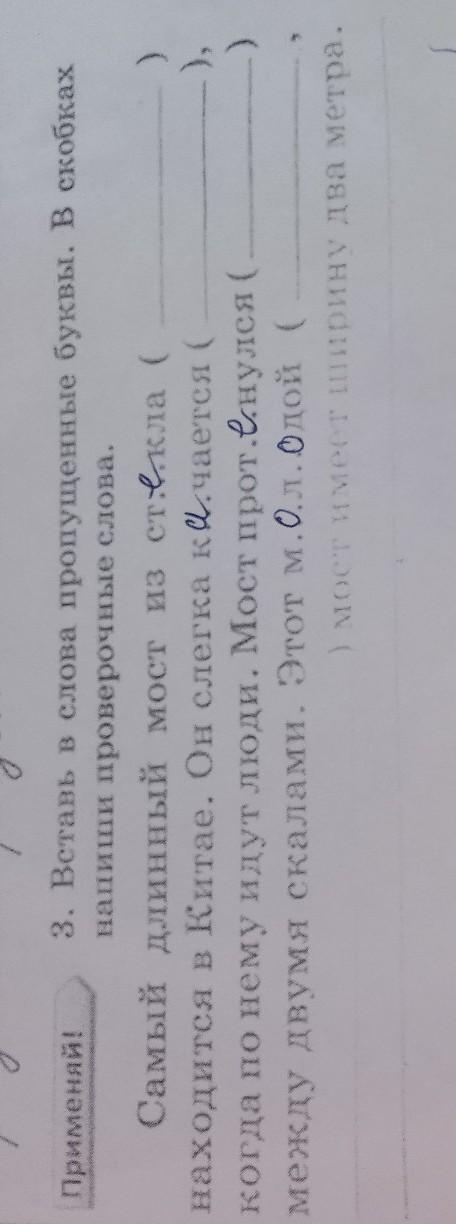 Применяй!
3. Вставь в слова пропущенные буквы. В скобках
напиши проверочные слова.
Самый длинный мост из ст.е.кла ( )
находится в Китае. Он слегка ка.чается ( ),
когда по нему идут люди. Мост прот.е.нулся ( )
между двумя скалами. Этот м.о.л.одой ( ,
) мост имеет ширину два метра.